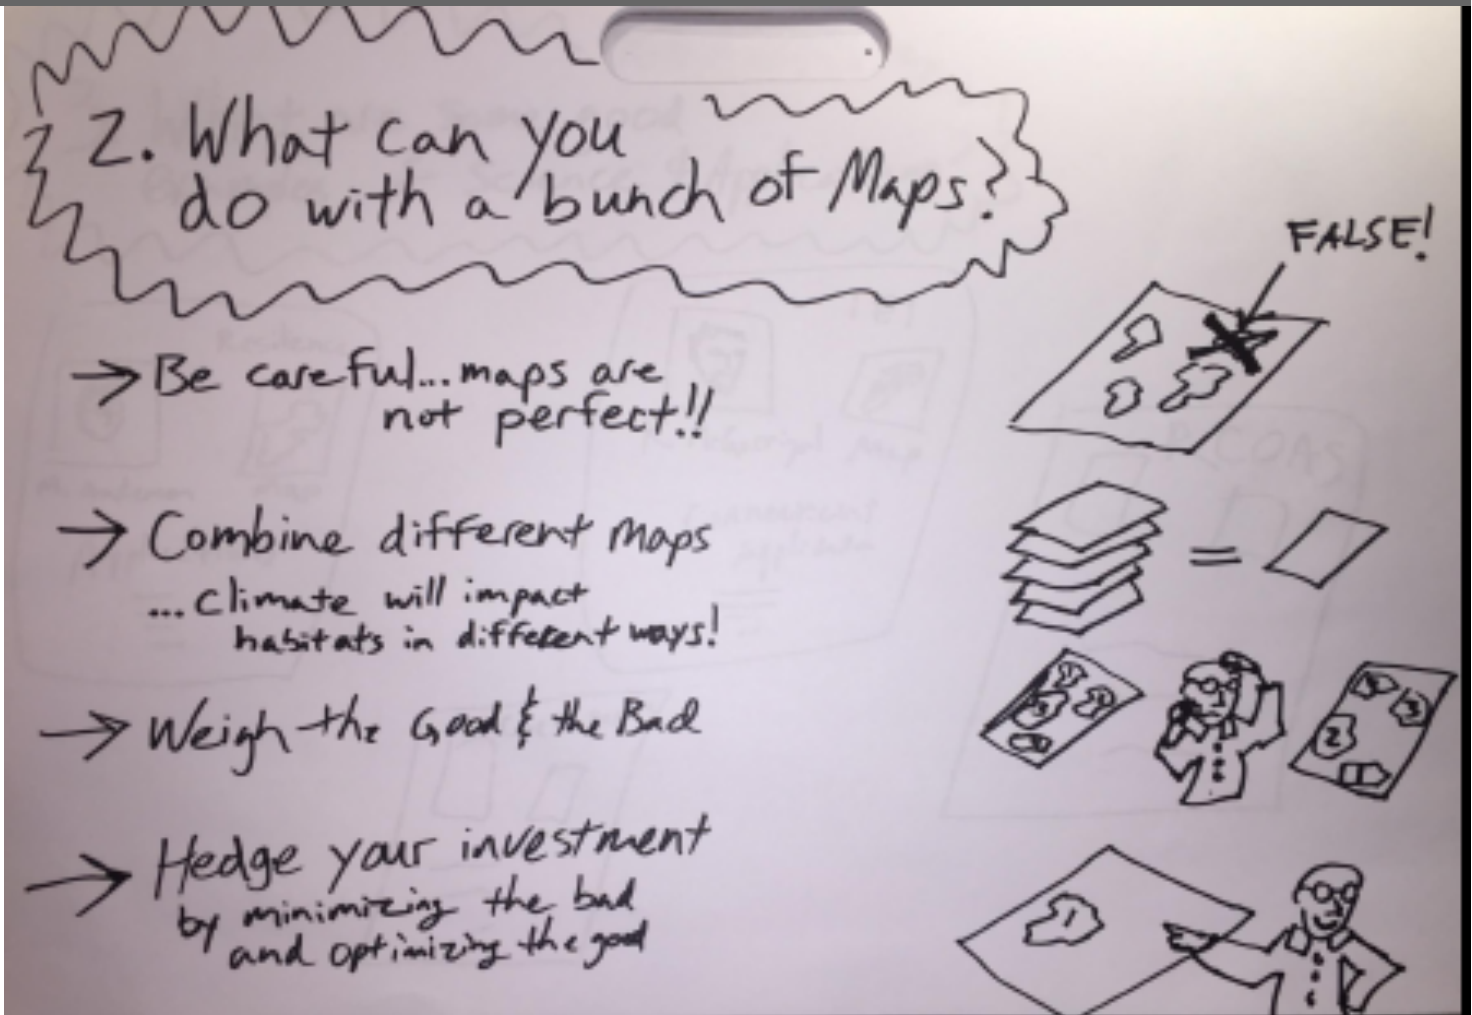 2. What can you
do with a bunch of Maps?
FALSE!
→ Be careful... maps are
not perfect!!
→ Combine different maps
... Climate will impact
habitats in different ways!
→ Weigh the Good & the Bad
→ Hedge your investment
by minimizing the bad
and optimizing the good
=
3
2
1